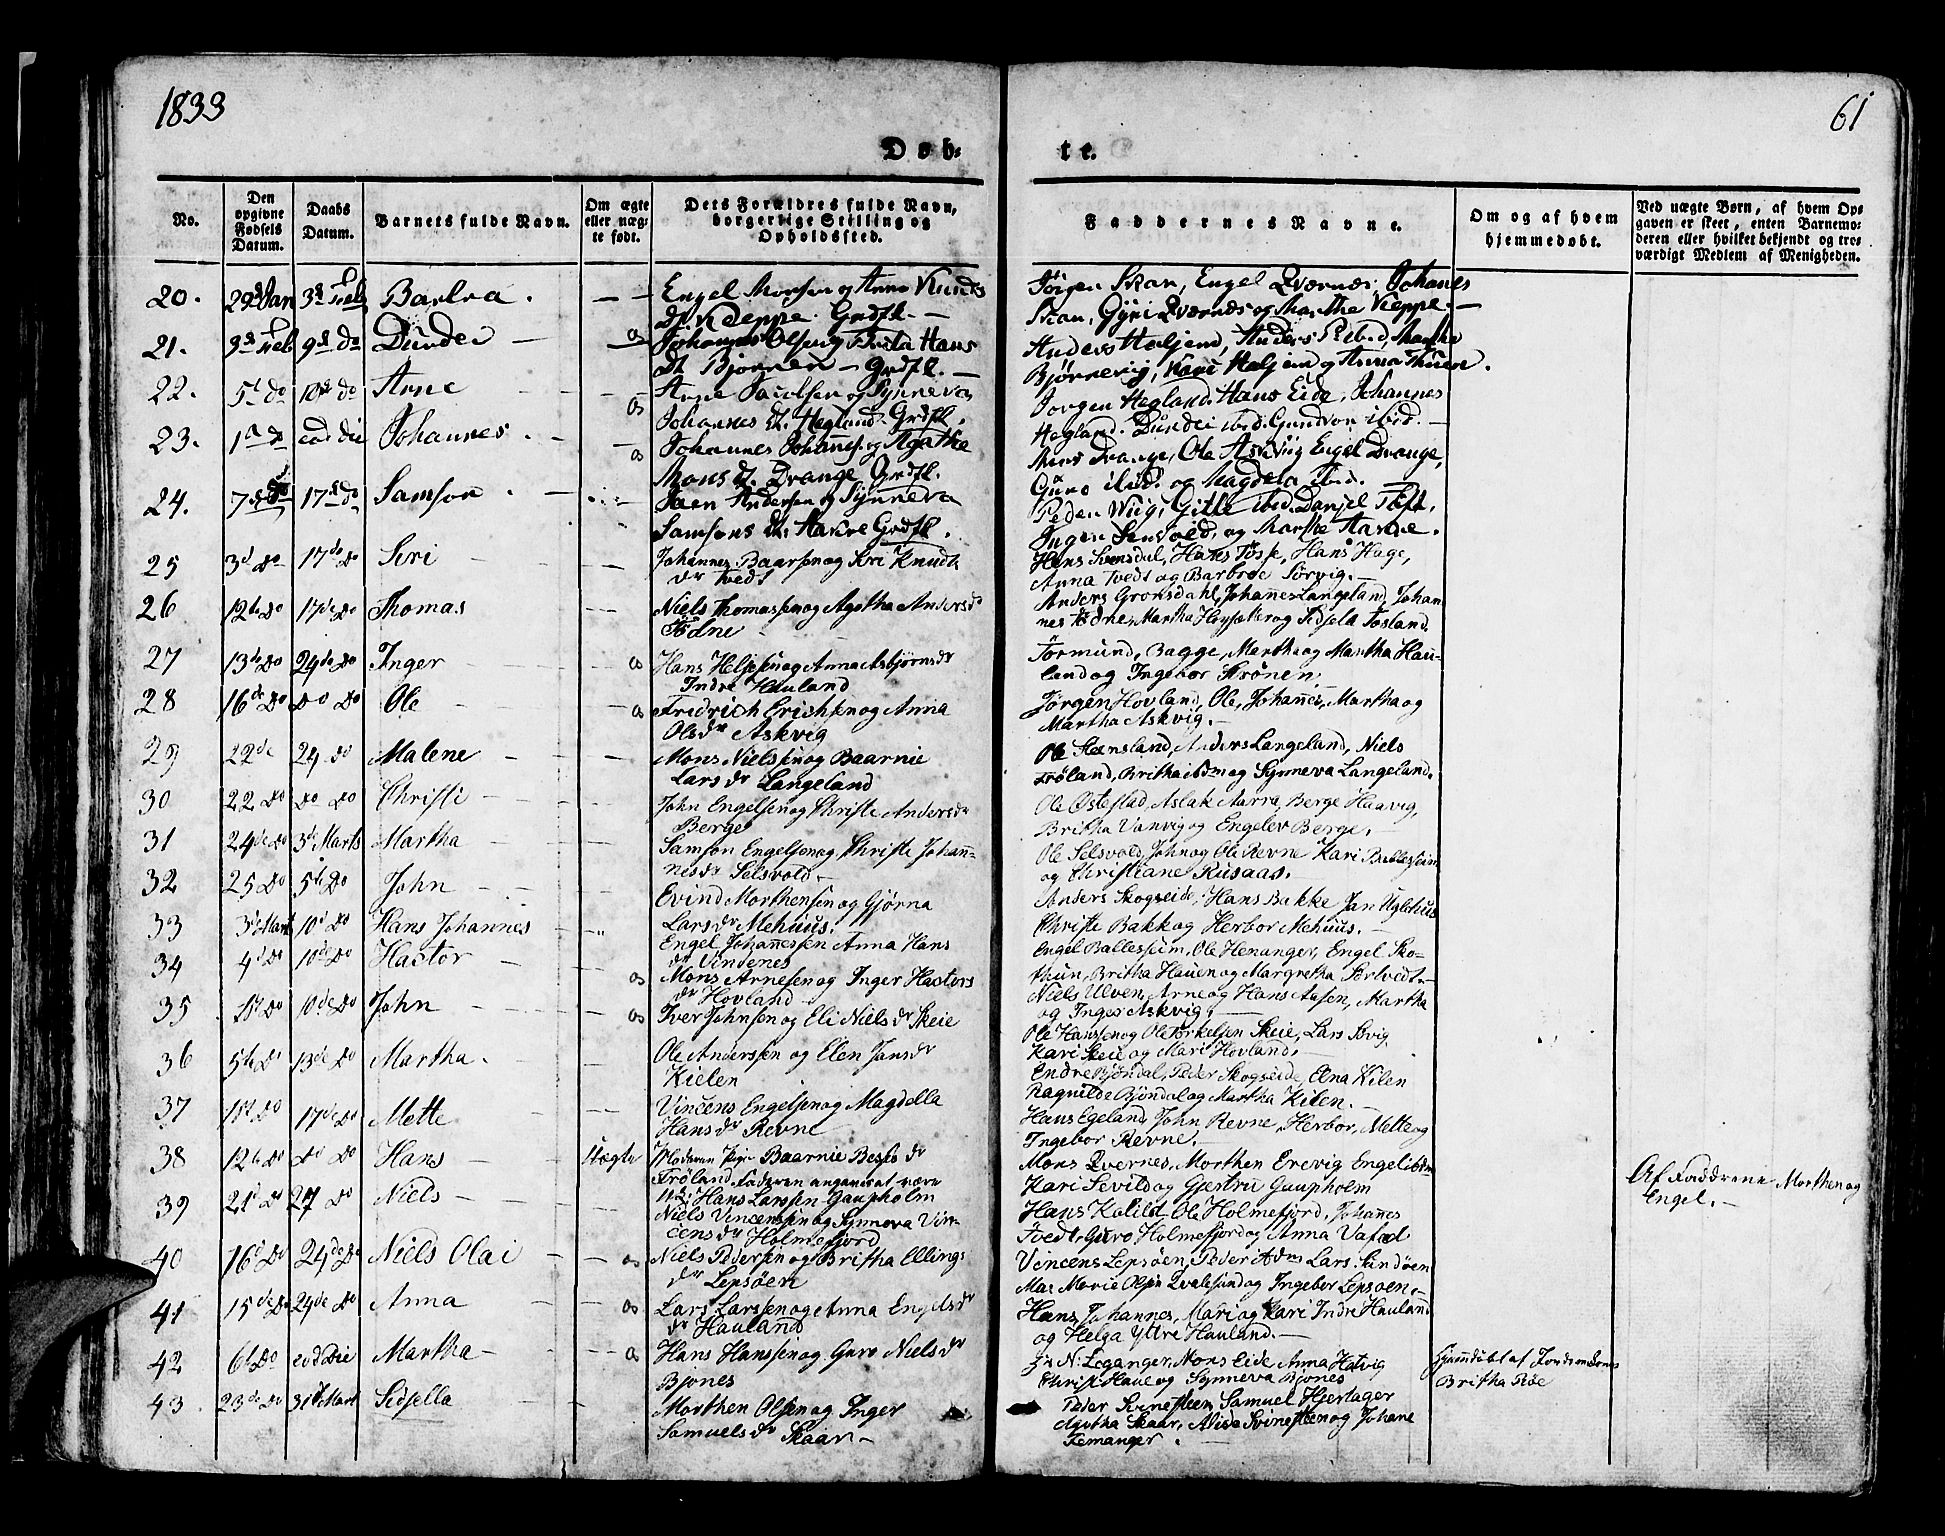 1833
61
Døb-
te.
No.
Den opgivne Fødsels Datum.
Daabs Datum.
Barnets fulde Navn.
Om ægte eller uægte født.
Dets Forældres fulde Navn, borgerlige Stilling og Opholdssted.
Faddernes Navne.
Om og af hvem hjemmedøbt.
Ved uægte Børn, af hvem Opgaven er skeet, enten Barnemoderen eller hvilket bekjendt og troværdigt Medlem af Menigheden.
20. 29 Jan 3 Feb Barbra.
Engel Monsen og Anna Knuds
dr Kleppe. Grdfl.
Jørgen Skar, Engel Qværnes, Johanes
Skar, Gyri Qværnes og Marthe Kleppe.
21. 3 Feb 9 do Dundei
Johannes Olsen og Brita Hans
dr Bjørnen Grdfl.
Anders Haljem, Anders Rebnd, Marthe
Bjørnevig, Kari Haljem og Anna Thuen.
22. 5 do 10 do Arne
Arne Jacobsen og Synneva
Johannes dr. Hegland. Grdfl.
Jørgen Hegland, Hans Eide, Johannes
Hegland. Dundei ibid. Gundvor ibid.
23. 1 do eod die Johannes.
Johannes Johannes. og Agathe
Mons dr. Drange Grdfl.
Mons Drange, Ole Askvig Engel Drange,
Guro ibid. og Magdela ibid.
24. 7 do 17 do Samson.
Jaen Andersen og Synneva
Samsons dr. Hakre Grdfl.
Peder Wiig, Gitle ibid. Danjel Tuft,
og Marthe
25 3d Do 17de Do Siri
Johannes Baarsen og Siri Knuds
dr Tvedt
Hans Svensdal, Hans Tosse, Hans Hage,
Anna Tvedt og Barbroe Sørvig.
26 12te Do 17de Do Thomas
Niels Thomassen og Agatha Andersdr
Ødne
Anders Gronsdahl, Johanes Langeland, Johan
nes Ødne, Martha Hoysæter og Sidsela Tosland.
27 13de Do 24de Do Inger
Hans Helgesen og Anna Asbjørnsdr
Indre Hauland
Tormund, Bagge, Martha og Mantha Hau-
land og Ingebor Strønen.
28 16de Do Do Do Ole
Fridrich Erichsen og Anna
Olsdr Askvig
Jørgen Hovland, Ole, Johannes, Martha og
Martha Askvig.
29 22de 24 do Malene
Mons Nielsen og Baarnie
Lars dr Langeland
Ole Steensland, Anders Langeland, Niels
Frøland, Britha ibdm og Synneva Langeland.
30 22 Do Do Do Christi
John Engelsen og Christe Andersdr
Berge
Ole Østestad, Aslak Aarra, Berge Haavig,
Britha Vanvig og Engelev Berge.
31 24de Do 3de Marts Martha
Samson Engelsen og Christe Johan-
nesdr Selsvold
Ole Selsvold, John og Ole Revne Kari Ballessem
og Christiane Rusaas.
32 25 Do 5te Do John
Evind Morthensen og Gjørna
Lars dr Mehuus.
Anders Skogseide, Hans Bakke Jan Uglehus
Christe Bakk og Herbor Mehuus.
33 3d Mart 10d Do Hans Johannes
Engel Johannessen Anna Hans
dr Vindenes
Engel Ballessem, Ole Henanger, Engel Sko-
thun, Britha Hauen og Margretha Sørtvedt.
34 4d Do 10de Do Hastor
Mons Arnesen og Inger Hastors
dr Hovland
Niels Ulven, Arne og Hans Aasen, Martha
og Inger Askvig.
35 1st Do 10de Do John
Iver Johnsen og Eli Niels dr Skeie
Ole Hanssen og Ole Torkelsen Skeie, Lars Søvig
Kari Skeie og Mari Hovland.
36 5te Do 13de Do Martha.
Ole Anderssen og Elen Jans dr
Kielen
Endre Bjøndal, Peder Skogseide, Elna Kilen
Ragnilde Bjøndal og Martha Kilen.
37 11te Do 17de Do Mette
Vincens Engelsen og Magdella
Hans dr Revne
Hans Egeland, John Revne, Herbor, Mette og
Ingebor Revne.
38 12te Do Do Do Hans
Uægte
Moderen Pige Baarnie Bessesdr
Frøland Faderen angivet at være
Hans Larssen Gaupholm
Mons Qvernes, Morthen Erevig Engel ibdm
Kari Sevild og Gjertru Gaupholm
Af Faddrene Morthen og
Engel.
39 21d Do 27 Do Niels
Niels Vincensen og Synneva Vin-
cens dr Holmefjord
Hans Kolild Ole Holmefjord, Johannes
Tvedt, Guro Holmefjord og Anna Vafad
40 16d Do 24de Do Niels Olai
Niels Pedersen og Britha Ellings
dr Lepsøen
Vincens Lepsøen, Peder Lars Sundøen
Mad. Marie Olsen Qvalesund og Ingebor Lepsøen.
41 15de Do 24de Do Anna
Lars Larssen og Anna Engels dr
dr Hauland
Hans, Johannes, Mari og Kari Indre Hauland
og Helga Yttre Hauland.
42 6t Do eod Die Martha
Hans Hanssen og Guro Niels dr
Bjones
N: Leganger, Mons Eide Anna Hatvig
Christ Haue og Synneva Bjones
Hjemmdøbt af Jordemoderen
Britha Røe
43. 23de Do 31st Mart Sidsella
Morthen Olsen og Inger
Samuels dr Skaar
Peder Svinesteen Samuel Hjertager
Agatha Skaar, Alida Svinesteen og Johane
Femanger.